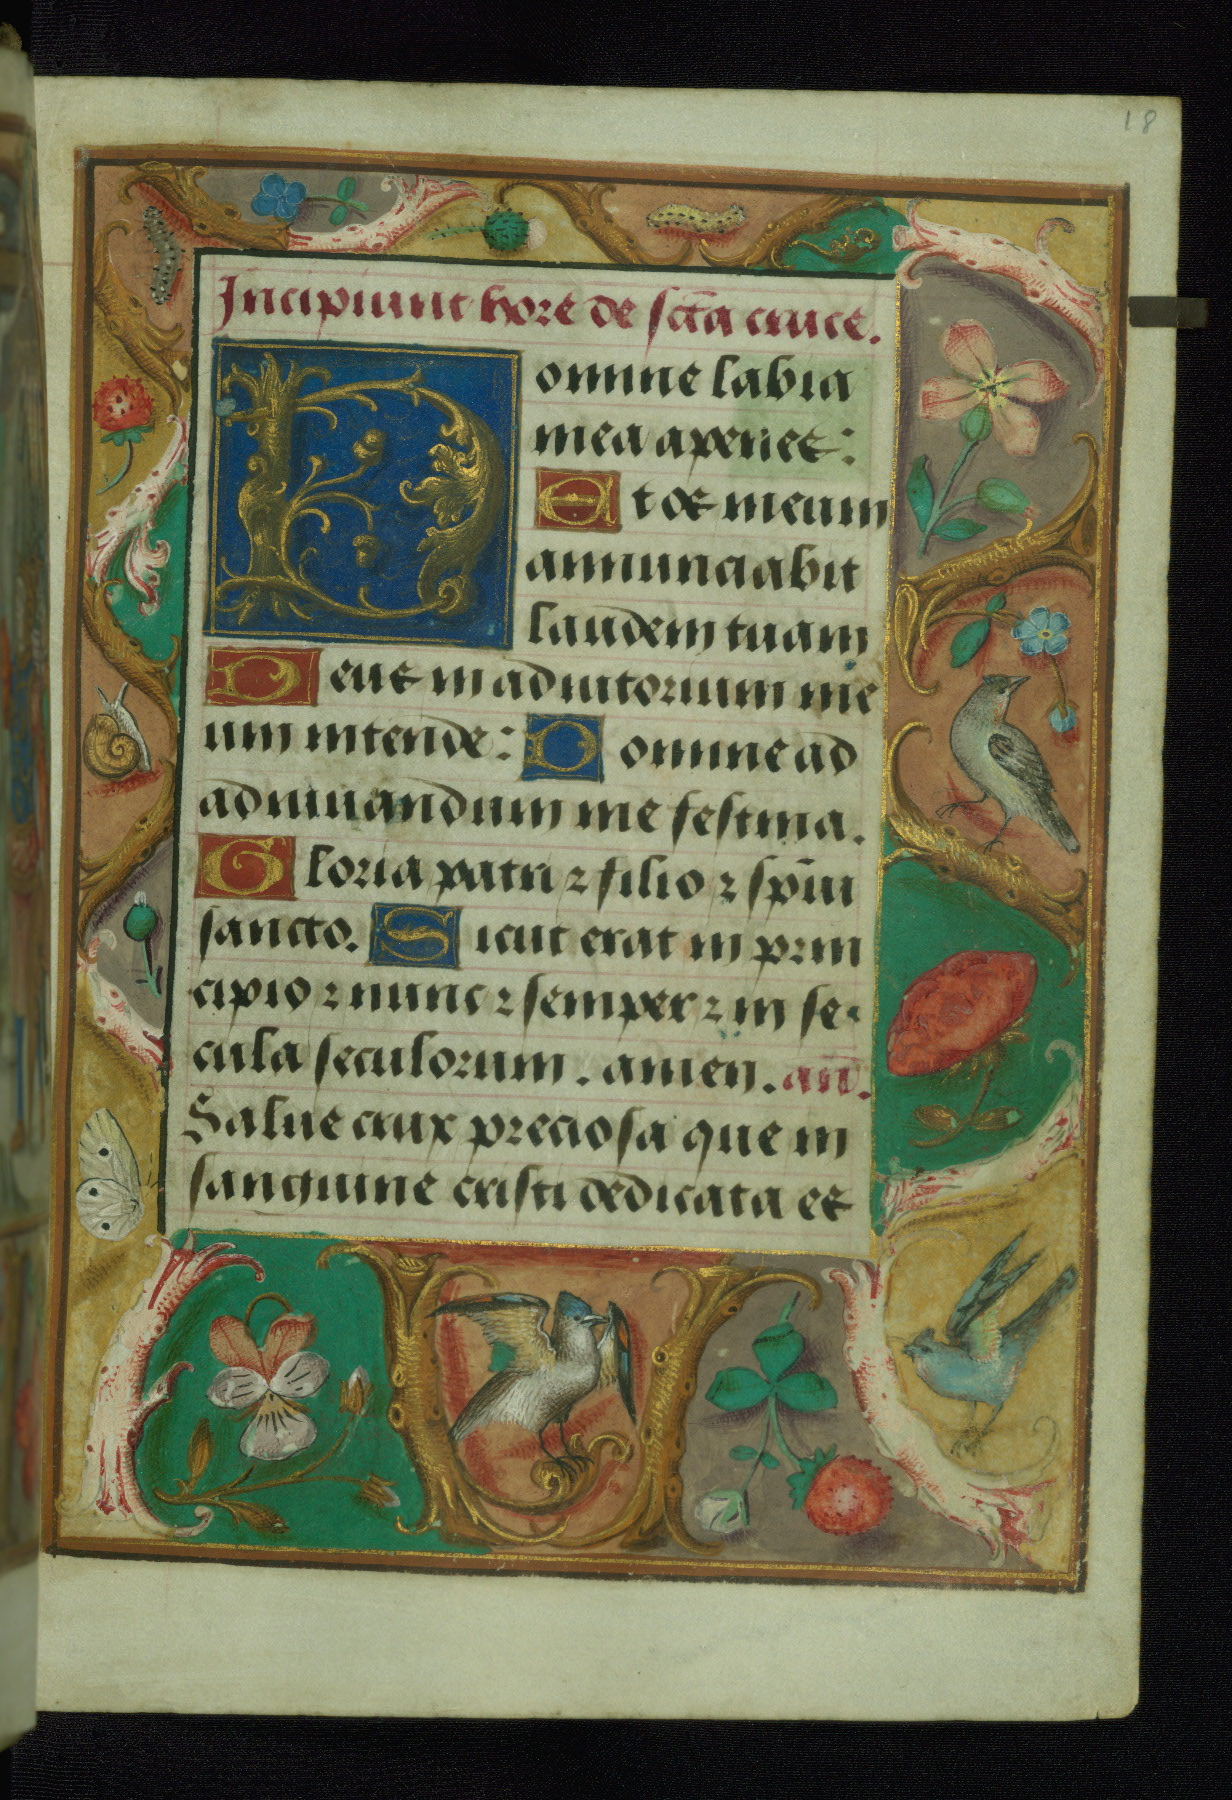 18
Incipiunt hore de scta cruce.
Domine labia
mea aperies:
Et os meum
annunciabit
laudem tuam
Deus in adiutorium me
um intende: Domine ad
adiuuandum me festina.
Gloria patri ⁊ filio ⁊ spūi
sancto. Sicut erat in prin
cipio ⁊ nunc ⁊ semper ⁊ in se-
cula seculorum. amen. an̄.
Salue crux preciosa que in
sanguine cristi dedicata es